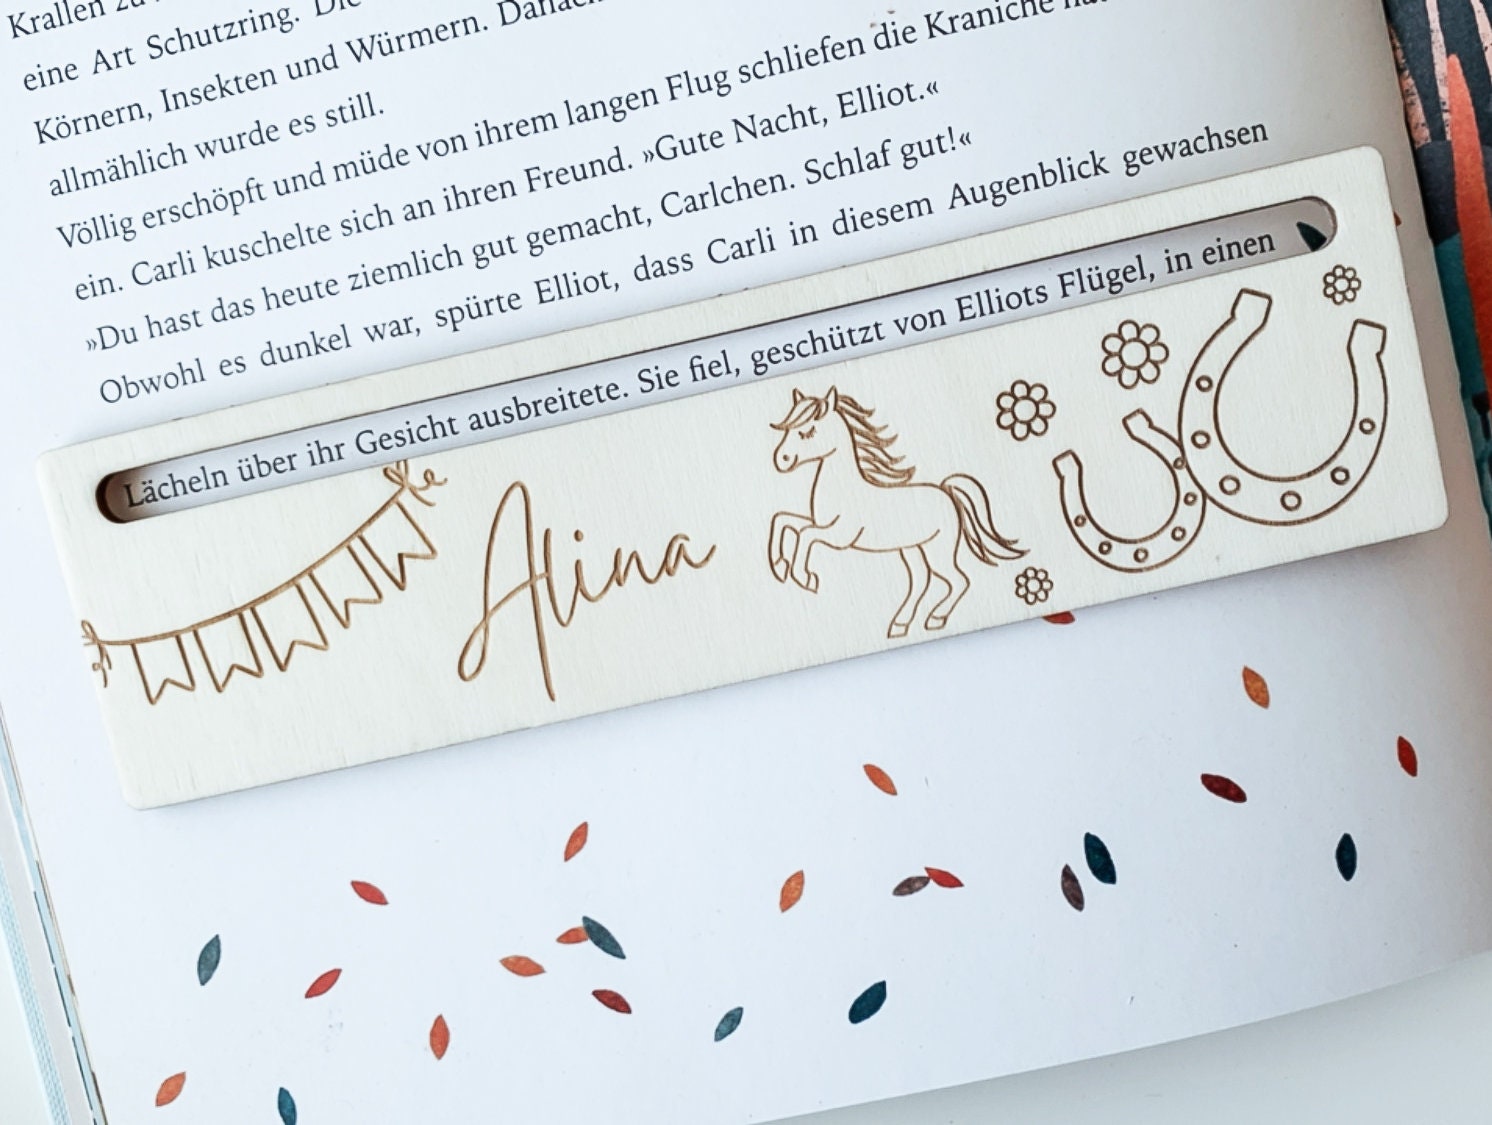 Krallen
eine Art Schutzring.
Körnern, Insekten und Würmern.
allmählich wurde es still.
Völlig erschöpft und müde von ihrem langen Flug schliefen die Kraniche
ein. Carli kuschelte sich an ihren Freund. »Gute Nacht, Elliot.«
»Du hast das heute ziemlich gut gemacht, Carlchen. Schlaf gut!«
Obwohl es dunkel war, spürte Elliot, dass Carli in diesem Augenblick gewachsen
Lächeln über ihr Gesicht ausbreitete. Sie fiel, geschützt von Elliots Flügel, in einen
Alina